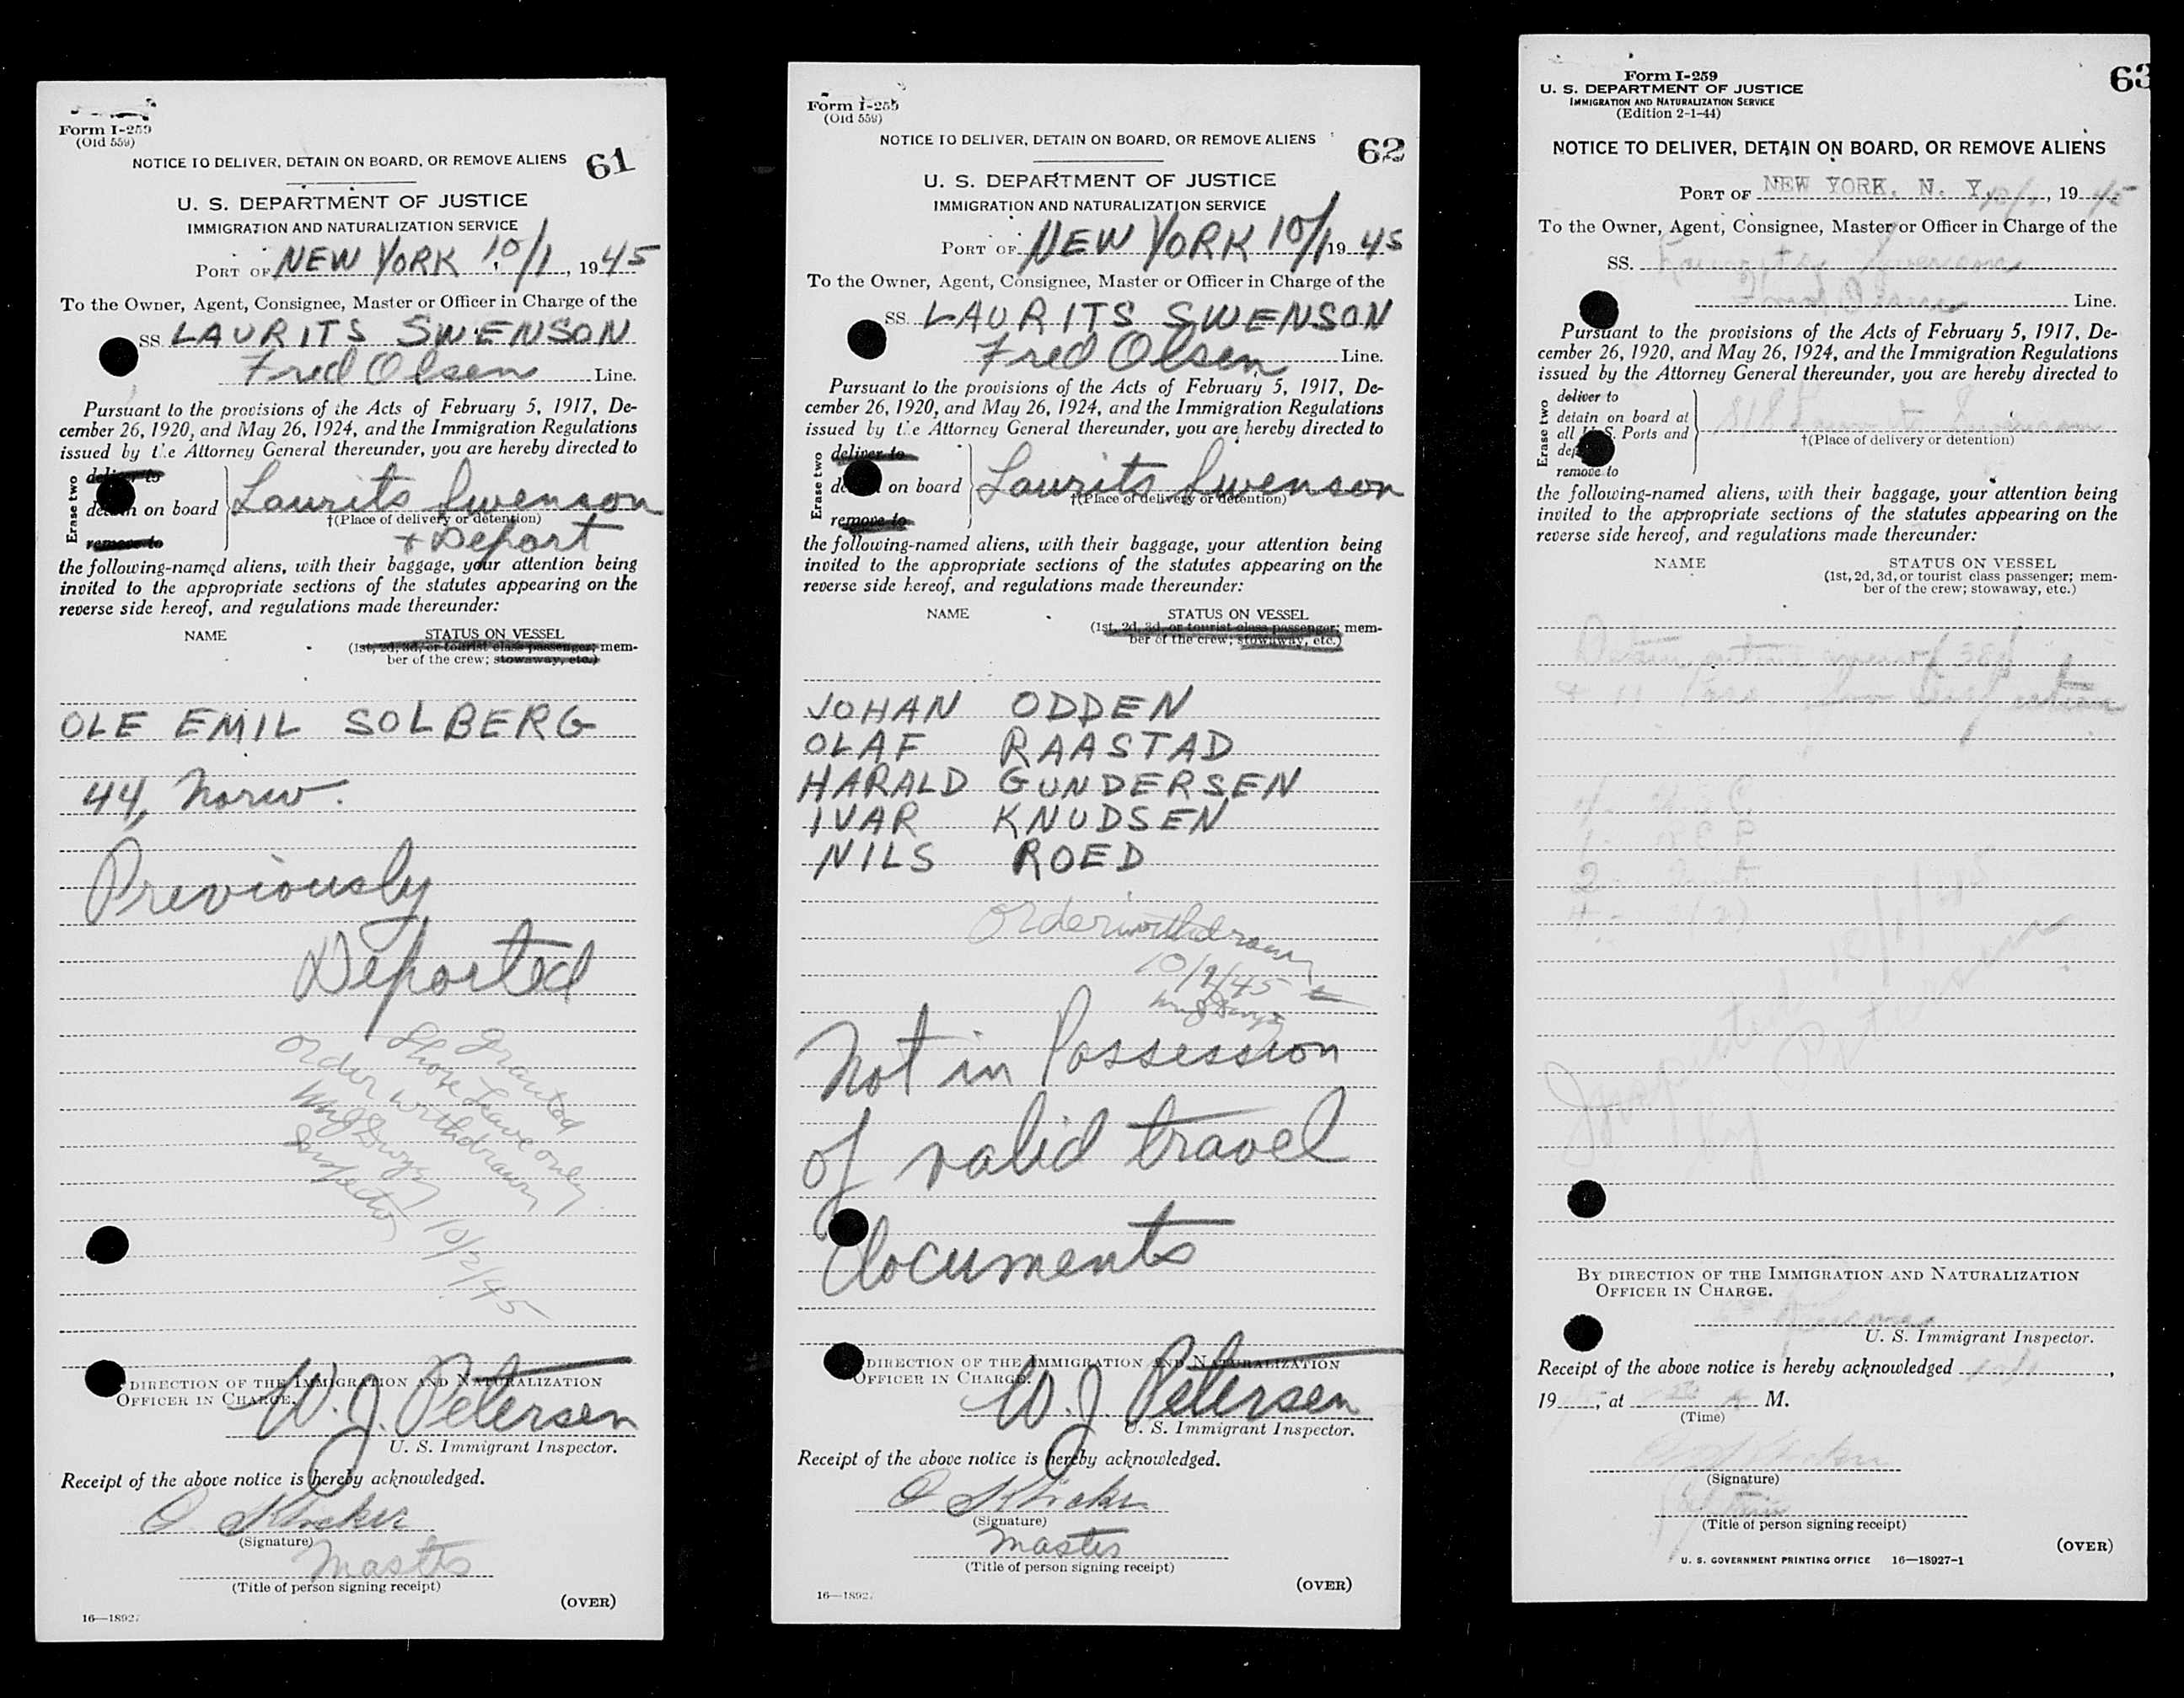 Form I-259
(Old 559)
NOTICE TO DELIVER, DETAIN ON BOARD, OR REMOVE ALIENS
61
U. S. DEPARTMENT OF JUSTICE
IMMIGRATION AND NATURALIZATION SERVICE
PORT OF NEW YORK 10/1, 1945
To the Owner, Agent, Consignee, Master or Officer in Charge of the
SS. LAURITS SWENSON
Fred Olsen Line.
Pursuant to the provisions of the Acts of February 5, 1917, De-
cember 26, 1920, and May 26, 1924, and the Immigration Regulations
issued by the Attorney General thereunder, you are hereby directed to
Erase two
deliver to
detain on board Laurits Swenson
†(Place of delivery or detention)
remove to
+ Deport
the following-named aliens, with their baggage, your attention being
invited to the appropriate sections of the statutes appearing on the
reverse side hereof, and regulations made thereunder:
NAME STATUS ON VESSEL
(1st, 2d, 3d, or tourist class passenger; mem-
ber of the crew; stowaway, etc.)
OLE EMIL SOLBERG
44, Norw.
Previously
Deported
Granted
Shore Leave only
Order withdrawn
Inspector
10/2/45
DIRECTION OF THE IMMIGRATION AND NATURALIZATION
OFFICER IN CHARGE.
W. J. Petersen
U. S. Immigrant Inspector.
Receipt of the above notice is hereby acknowledged.
O.
(Signature)
Master
(Title of person signing receipt)
(OVER)
16—18927
Form I-259
(Old 559)
NOTICE TO DELIVER, DETAIN ON BOARD, OR REMOVE ALIENS
62
U. S. DEPARTMENT OF JUSTICE
IMMIGRATION AND NATURALIZATION SERVICE
PORT OF NEW YORK 10/1 1945
To the Owner, Agent, Consignee, Master or Officer in Charge of the
SS. LAURITS SWENSON
Fred Olsen Line.
Pursuant to the provisions of the Acts of February 5, 1917, De-
cember 26, 1920, and May 26, 1924, and the Immigration Regulations
issued by the Attorney General thereunder, you are hereby directed to
Erase two
deliver to
detain on board Laurits Swenson
†(Place of delivery or detention)
remove to
the following-named aliens, with their baggage, your attention being
invited to the appropriate sections of the statutes appearing on the
reverse side hereof, and regulations made thereunder:
NAME STATUS ON VESSEL
(1st, 2d, 3d, or tourist class passenger; mem-
ber of the crew; stowaway, etc.)
JOHAN ODDEN
OLAF RAASTAD
HARALD GUNDERSEN
IVAR KNUDSEN
NILS ROED
Order withdrawn
Not in Possession
of valid travel
documents
DIRECTION OF THE IMMIGRATION AND NATURALIZATION
OFFICER IN CHARGE.
W. J. Petersen
U. S. Immigrant Inspector.
Receipt of the above notice is hereby acknowledged.
O.
(Signature)
Master
(Title of person signing receipt)
(OVER)
16—18927
Form I-259
U. S. DEPARTMENT OF JUSTICE
IMMIGRATION AND NATURALIZATION SERVICE
(Edition 2-1-44)
63
NOTICE TO DELIVER, DETAIN ON BOARD, OR REMOVE ALIENS
PORT OF NEW YORK, N. Y. 10/1, 1945
To the Owner, Agent, Consignee, Master or Officer in Charge of the
SS. Laurits Swenson
Fred Olsen Line.
Pursuant to the provisions of the Acts of February 5, 1917, De-
cember 26, 1920, and May 26, 1924, and the Immigration Regulations
issued by the Attorney General thereunder, you are hereby directed to
Erase two
deliver to
detain on board at
all U. S. Ports and
remove to
†(Place of delivery or detention)
the following-named aliens, with their baggage, your attention being
invited to the appropriate sections of the statutes appearing on the
reverse side hereof, and regulations made thereunder:
NAME STATUS ON VESSEL
(1st, 2d, 3d, or tourist class passenger; mem-
ber of the crew; stowaway, etc.)
Detain entire crew
+ 11 Pass for inspection
Inspected 10/1/45
By Petersen
BY DIRECTION OF THE IMMIGRATION AND NATURALIZATION
OFFICER IN CHARGE.
U. S. Immigrant Inspector.
Receipt of the above notice is hereby acknowledged
19 , at M.
(Time)
(Signature)
(Title of person signing receipt)
(OVER)
U. S. GOVERNMENT PRINTING OFFICE 16—18927-1